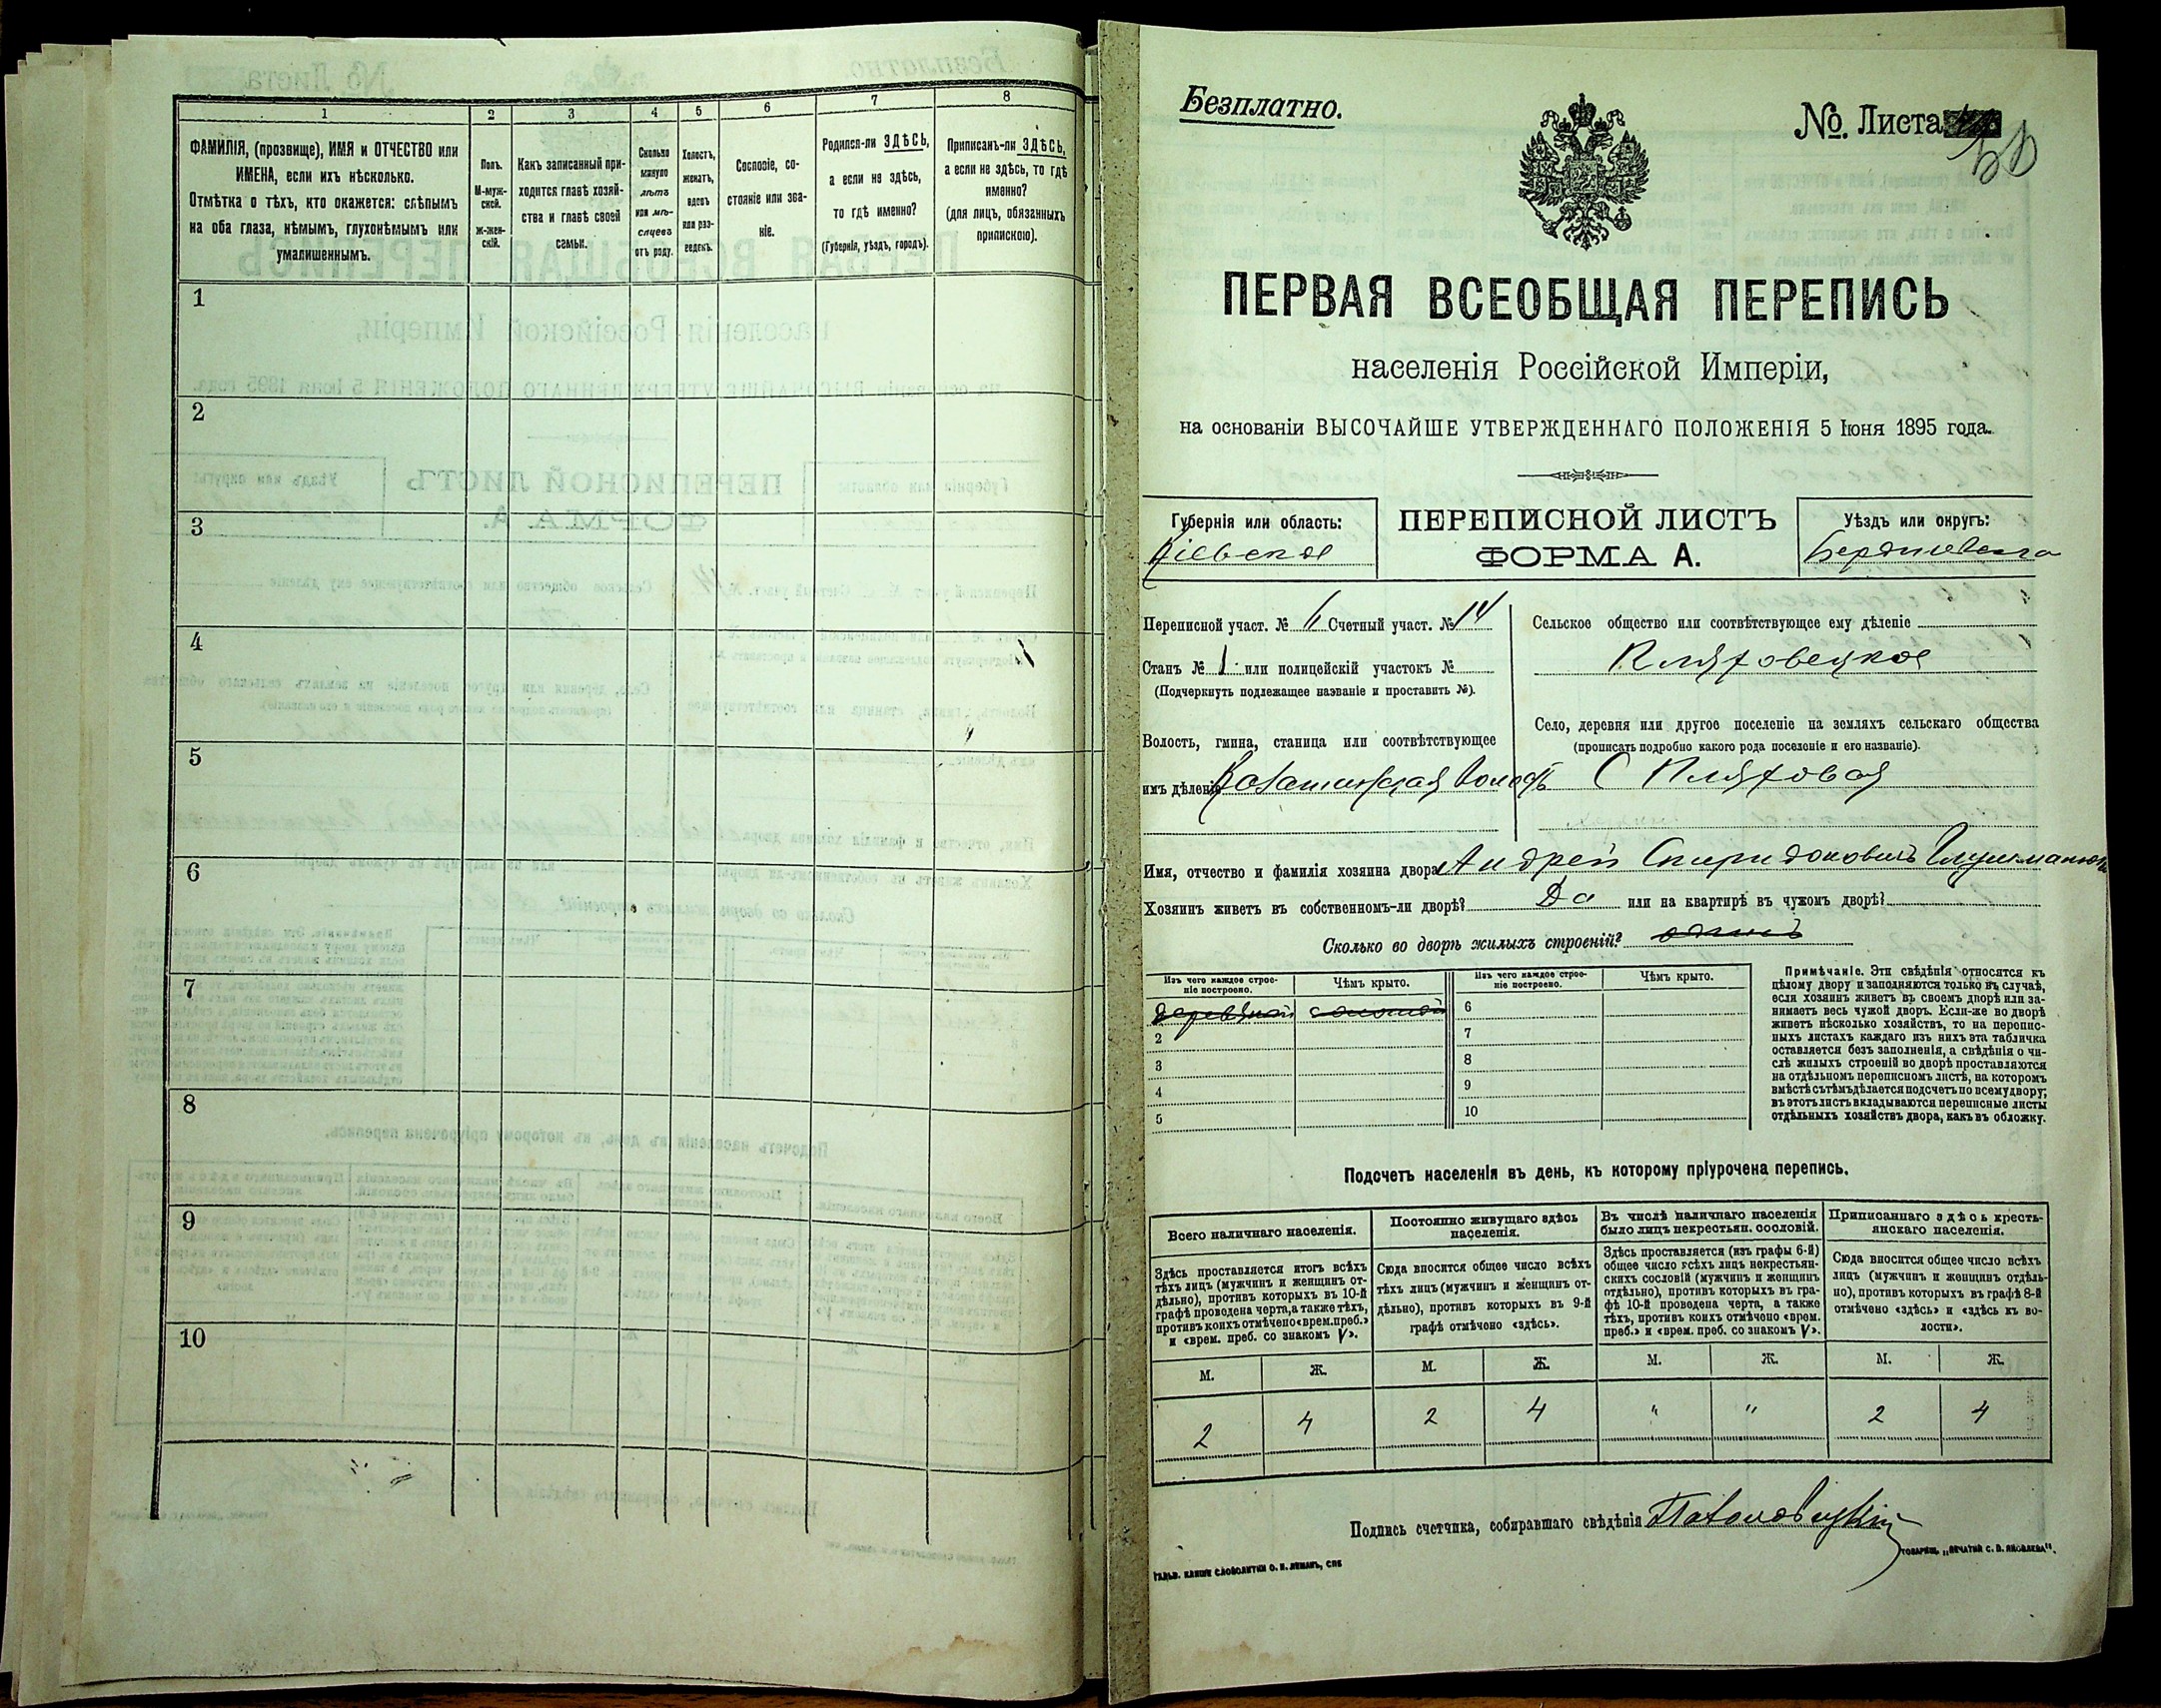 1
2
3
4
5
6
7
8
ФАМИЛІЯ, (прозвище), ИМЯ и ОТЧЕСТВО или
ИМЕНА, если ихъ нѣсколько.
Отмѣтка о тѣхъ, кто окажется: слѣпымъ
на оба глаза, нѣмымъ, глухонѣмымъ или
умалишеннымъ.
Полъ.
М-муж-
ской.
Ж-жен-
скій.
Какъ записанный при-
ходится главѣ хозяй-
ства и главѣ своей
семьи.
Сколько
минуло
лѣтъ
или мѣ-
сяцевъ
отъ роду.
Холостъ,
женатъ,
вдовъ
или раз-
веденъ.
Сословіе, со-
стояніе или зва-
ніе.
Родился-ли ЗДѢСЬ,
а если не здѣсь,
то гдѣ именно?
(Губернія, уѣздъ, городъ).
Приписанъ-ли ЗДѢСЬ,
а если не здѣсь, то гдѣ
именно?
(для лицъ, обязанныхъ
припискою).
1
2
3
4
5
6
7
8
9
10
Безплатно.
№. Листа
ПЕРВАЯ ВСЕОБЩАЯ ПЕРЕПИСЬ
населенія Россійской Имперіи,
на основаніи ВЫСОЧАЙШЕ УТВЕРЖДЕННАГО ПОЛОЖЕНІЯ 5 Іюня 1895 года.
Губернія или область:
Кіевская
ПЕРЕПИСНОЙ ЛИСТЪ
ФОРМА А.
Уѣздъ или округъ:
Бердичевскаго
Переписной участ. № 6 Счетный участ. № 14
Станъ № 1 или полицейскій участокъ №
(Подчеркнуть подлежащее названіе и проставить №).
Волость, гмина, станица или соотвѣтствующее
имъ дѣленіе Козатинская Волость
Сельское общество или соотвѣтствующее ему дѣленіе
Пляховецкое
Село, деревня или другое поселеніе на земляхъ сельскаго общества
(прописать подробно какого рода поселеніе и его названіе).
С Пляховая
Имя, отчество и фамилія хозяина двора Андрей Спиридоновичъ
Хозяинъ живетъ въ собственномъ-ли дворѣ? Да или на квартирѣ въ чужомъ дворѣ?
Сколько во дворѣ жилыхъ строеній? одинъ
Изъ чего каждое строе-
ніе построено.
Чѣмъ крыто.
Изъ чего каждое строе-
ніе построено.
Чѣмъ крыто.
деревяной соломой
2
3
4
5
6
7
8
9
10
Примѣчаніе. Эти свѣдѣнія относятся къ
цѣлому двору и заполняются только въ случаѣ,
если хозяинъ живетъ въ своемъ дворѣ или за-
нимаетъ весь чужой дворъ. Если-же во дворѣ
живетъ нѣсколько хозяйствъ, то на перепис-
ныхъ листахъ каждаго изъ нихъ эта табличка
оставляется безъ заполненія, а свѣдѣнія о чи-
слѣ жилыхъ строеній во дворѣ проставляются
на отдѣльномъ переписномъ листѣ, на которомъ
вмѣстѣ съ тѣмъ дѣлается подсчетъ по всему двору;
въ этотъ листъ вкладываются переписные листы
отдѣльныхъ хозяйствъ двора, какъ въ обложку.
Подсчетъ населенія въ день, къ которому пріурочена перепись.
Всего наличнаго населенія.
Здѣсь проставляется итогъ всѣхъ
тѣхъ лицъ (мужчинъ и женщинъ от-
дѣльно), противъ которыхъ въ 10-й
графѣ проведена черта, а также тѣхъ,
противъ коихъ отмѣчено «врем. преб.»
и «врем. преб. со знакомъ V».
Постоянно живущаго здѣсь
населенія.
Сюда вносится общее число всѣхъ
тѣхъ лицъ (мужчинъ и женщинъ от-
дѣльно), противъ которыхъ въ 9-й
графѣ отмѣчено «здѣсь».
Въ числѣ наличнаго населенія
было лицъ некрестьян. сословій.
Здѣсь проставляется (изъ графы 6-й)
общее число всѣхъ лицъ некрестьян-
скихъ сословій (мужчинъ и женщинъ
отдѣльно), противъ которыхъ въ гра-
фѣ 10-й проведена черта, а также
тѣхъ, противъ коихъ отмѣчено «врем.
преб.» и «врем. преб. со знакомъ V».
Приписаннаго здѣсь кресть-
янскаго населенія.
Сюда вносится общее число всѣхъ
лицъ (мужчинъ и женщинъ отдѣль-
но), противъ которыхъ въ графѣ 8-й
отмѣчено «здѣсь» и «здѣсь къ во-
лости».
М. Ж. М. Ж. М. Ж. М. Ж.
2 4 2 4 " " 2 4
Подпись счетчика, собиравшаго свѣдѣнія
ГАЛЬВ. КЛИШЕ СЛОВОЛИТНИ О. И. ЛЕМАНЪ, СПБ
ТОВАРИЩ. „ПЕЧАТНЯ С. П. ЯКОВЛЕВА“.